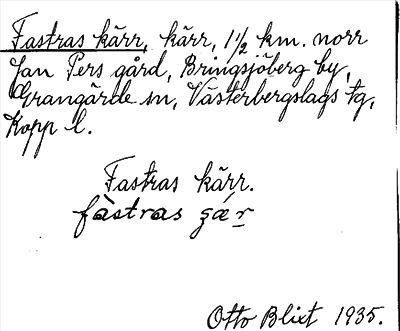 Fastras kärr, kärr, 1 1/2 km. norr
Jan Pers gård, Bringsjöberg by,
Grangärde sn, Västerbergslags tg,
Kopp l.
Fastras kärr.
fàstras ɕǽr
Otto Blixt 1935.